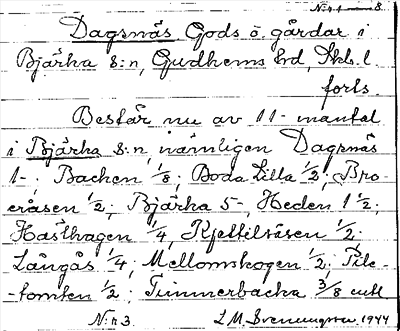 Dagsnäs Gods ö gårdar i
Bjärka s:n, Gudhems hd, Skb. l.
forts.
Består nu av 11- mantal
i Bjärka s:n, nämligen Dagsnäs
1-; Backen 1/8; Boda Lilla 1/2; Bro-
eråsen 1/2; Bjärka 5-, Heden 1 1/2;
Hasthagen 1/4, Kjettilsåsen 1/2;
Långås 1/4; Mellomskogen 1/2; Pile-
-tomten 1/2; Timmerbacka 3/8 mtl
N:r 3. L M 1944